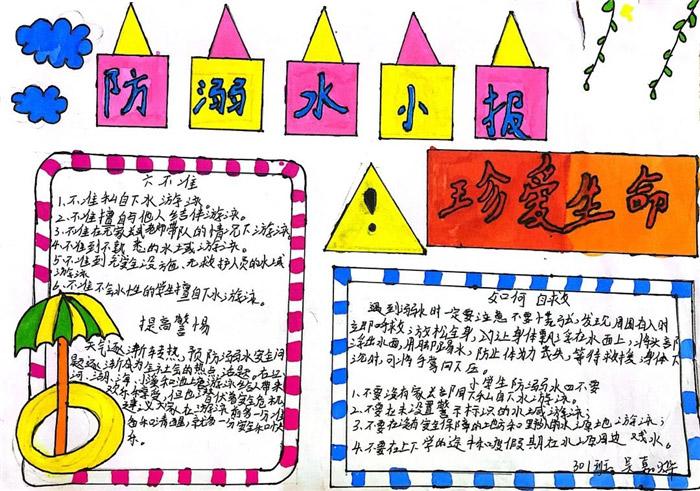 防溺水小报
珍爱生命
六不准
1.不准私自下水游泳。
2.不准擅自与他人结伴游泳。
3.不准在无家长或老师带队的情况下游泳。
4.不准到不熟悉的水域游泳。
5.不准到无安全设施、无救护人员的水域
游泳
6.不准不会水性的学生擅自下水游泳。
提高警惕
天气逐渐转热，预防溺水安全问
题逐渐成为全社会的热点话题。在江
河、湖、海、小溪和池塘游泳给人带来
建议大家在游泳前多一分准
如何自救
遇到溺水时一定要注意不要慌张，发现周围有人时
立即呼救，放松全身，让身体飘浮在水面上，将头部
浮出水面，用脚踢水，防止体力丧失，等待救援，身体下
沉时，可将手掌向下压。
小学生防溺水四不要
1.不要没有家长
2.不要去未设置警示标识的水域游泳；
3.不要在没有安全保障的地方和
4.不要在上下学的途中和度假期在水
301班 吴嘉烨